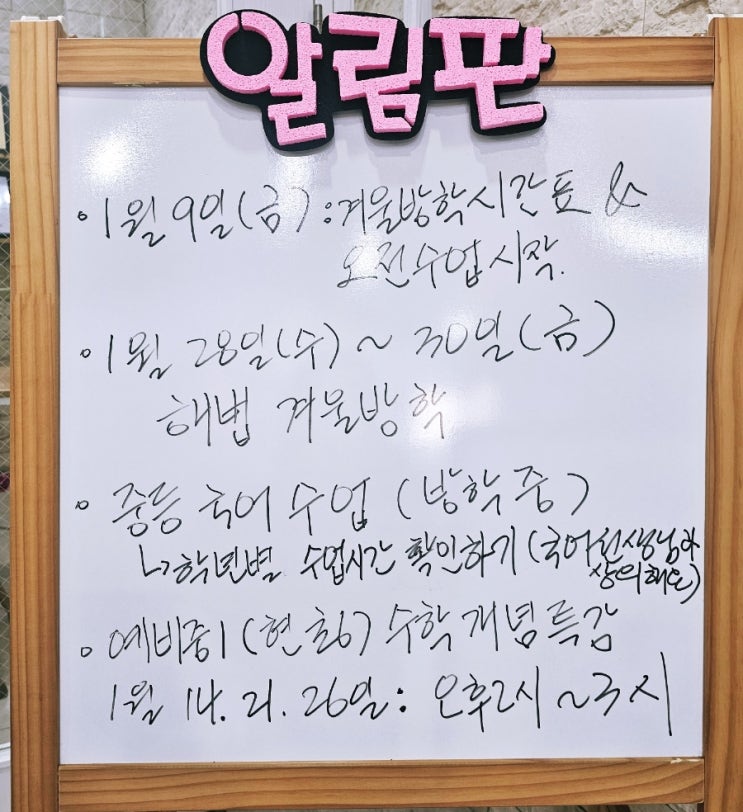 알림판
• 1월 9일(금) : 겨울방학시간표 &
오전수업시작.
• 1월 28일(수) ~ 30일(금)
해법 겨울방학
• 중등 국어 수업 (방학중)
↳ 학년별 수업시간 확인하기 (국어선생님과
상의해요)
• 예비중1(현초6) 수학개념특강
1월 14. 21. 26일 : 오후2시~3시